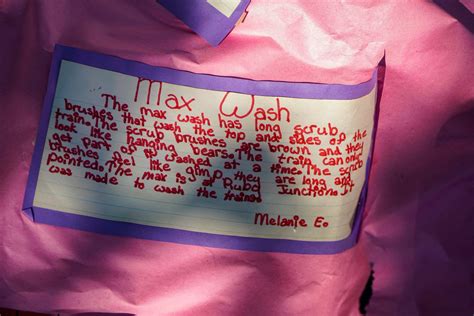 Max Wash
The max wash has long scrub
brushes that wash the top and sides of the
train. The scrub brushes are brown and they
look like hanging bears. The train can only
get part of it washed at a time. The scrub
brushes feel like gimp, they are long and
pointed. The max is at Ruby Junction. It
was made to wash the trains.
Melanie E.